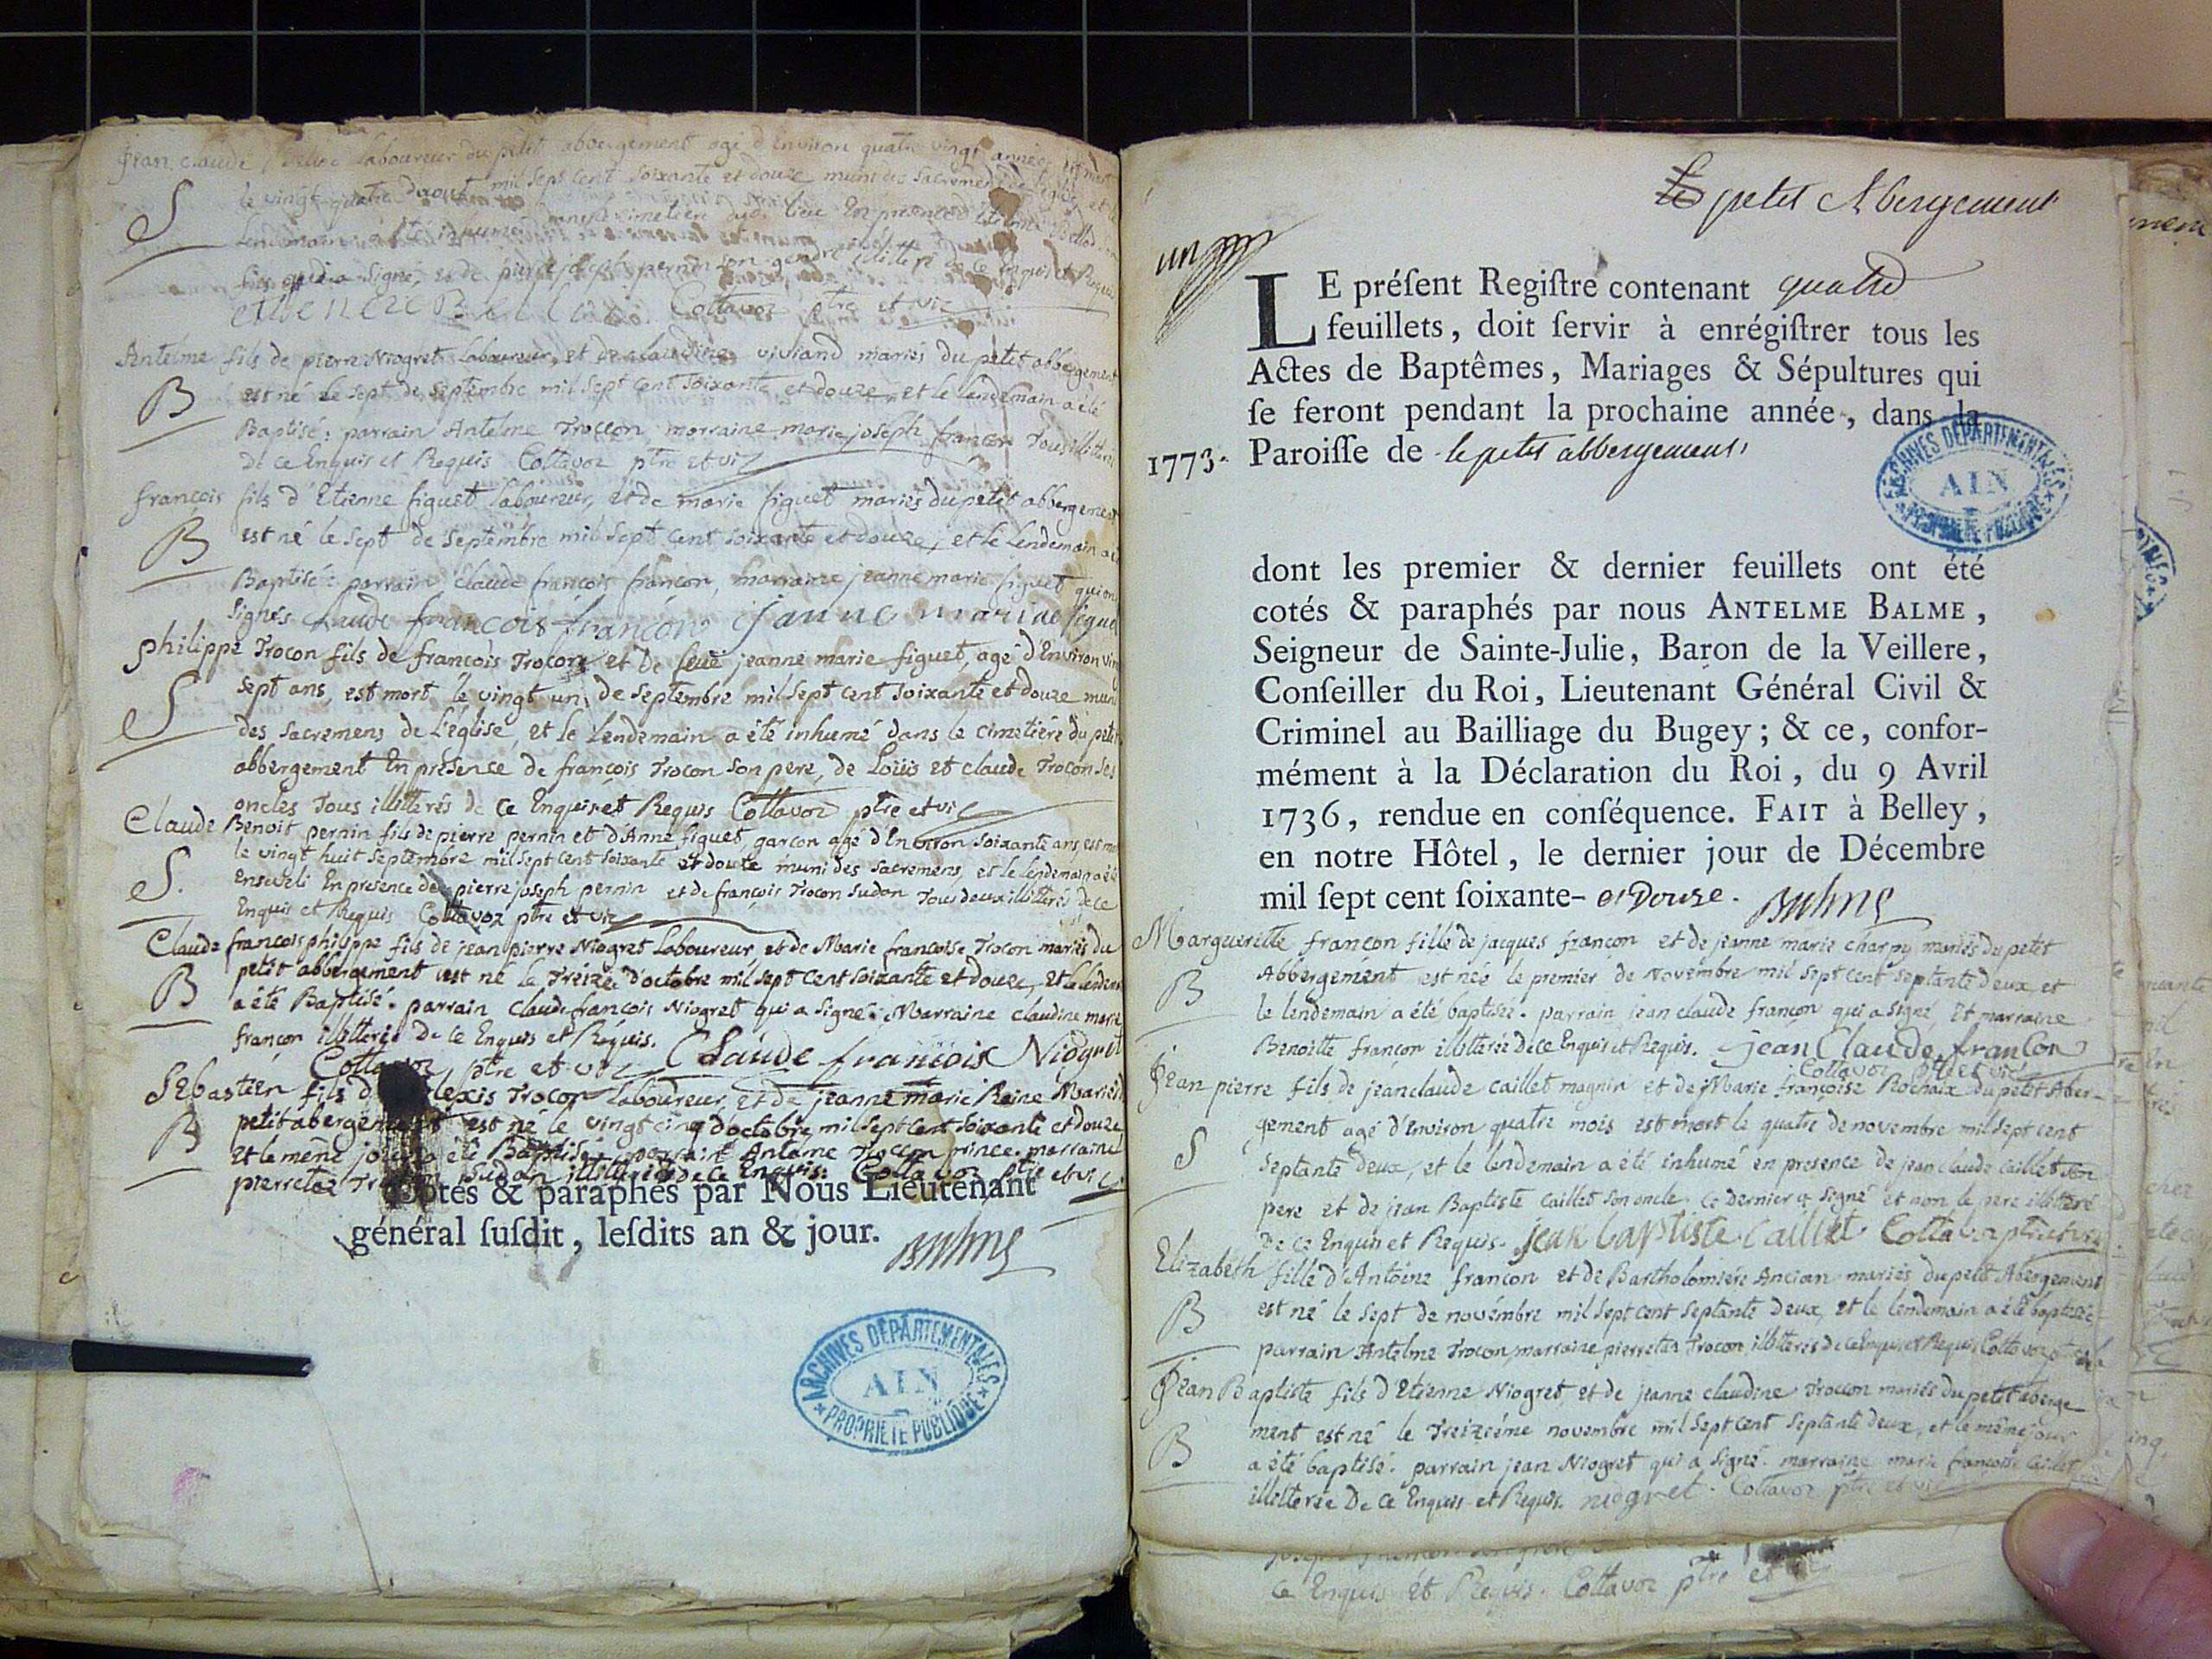 Jean claude laboureur du petit abbergement agé d'Environ quatre vingt années est mort
S
le vingt quatre daoust mil sept cent soixante et douze muni des sacremens de l'église, et le
Lendemain a été inhumé cimetière dud. lieu En presence
fils qui a signé, et de pierre joseph pernin son gendre illitere de ce Enquis et Requis
etienne Collavoz ptre et vic
Antelme fils de pierre Niogret Laboureur, et de claudine viviand mariés du petit abbergement
B
est né le sept de septembre mil sept cent soixante et douze, et le lendemain a été
Baptisé: parrain Antelme Troccon, marraine marie joseph françon Tous illitterés
De ce Enquis et Requis Collavoz ptre et vic
françois fils d'Etienne figuet laboureur, et de marie figuet mariés du petit abbergement
B
est né le sept de septembre mil sept cent soixante et douze, et le Lendemain a été
Baptisé: parrain claude françois françon, marraine jeanne marie figuet qui ont
signés claude françois françon janne mariae figuet
philippe Trocon fils de françois Trocon et de feüe jeanne marie figuet, agé d'Environ vingt
S
sept ans, est mort le vingt un de septembre mil sept cent soixante et douze muni
des sacremens de l'église, et le Lendemain a été inhumé dans le cimetière du petit
abbergement En présence de françois Trocon son pere, de Loüis et claude Trocon ses
oncles Tous illitterés de ce Enquis et Requis Collavoz ptre et vic
Claude Benoit pernin fils de pierre pernin et d'Anne figuet, garçon agé d'Environ soixante ans, est mort
S.
le vingt huit septembre mil sept cent soixante et douze muni des sacremens, et le lendemain a été
Enseveli En presence de pierre joseph pernin et de françois Trocon sudan Tous deux illitterés de ce
Enquis et Requis Collavoz ptre et vic
Claude françois philippe fils de jean pierre Niogret Laboureur, et de Marie françoise Trocon mariés du
B
petit abbergement est né le Treize d'octobre mil sept cent soixante et douze, et le lendemain
a été Baptisé. parrain claude françois Niogret qui a signé. Marraine claudine marie
françon illitterée De ce Enquis et Requis.
Collavoz ptre et vic Claude françois Niogret
Sebastien fils d'alexis Trocon laboureur et de jeanne marie Reine Mariés du
B
petit abergement est né le vingt cinq d'octobre mil sept cent soixante et douze
et le même jour a été Baptisé. parrain Antelme Troccon prince. marraine
pierrette Trocon sudan illitterés de ce Enquis. Collavoz ptre et vic
Cotés & paraphés par Nous Lieutenant
général ſuſdit, leſdits an & jour.
Balme
ARCHIVES DÉPARTEMENTALES
AIN
PROPRIÉTÉ PUBLIQUE
petit Abergement
un
LE préſent Regiſtre contenant quatre
feuillets, doit ſervir à enrégiſtrer tous les
Actes de Baptêmes, Mariages & Sépultures qui
ſe feront pendant la prochaine année, dans la
1773. Paroiſſe de le petit abbergement
ARCHIVES DÉPARTEMENTALES
AIN
PROPRIÉTÉ PUBLIQUE
dont les premier & dernier feuillets ont été
cotés & paraphés par nous ANTELME BALME,
Seigneur de Sainte-Julie, Baron de la Veillere,
Conſeiller du Roi, Lieutenant Général Civil &
Criminel au Bailliage du Bugey; & ce, confor-
mément à la Déclaration du Roi, du 9 Avril
1736, rendue en conſéquence. FAIT à Belley,
en notre Hôtel, le dernier jour de Décembre
mil ſept cent ſoixante- et Douze. Balme
Marguerite françon fille de jacques françon et de jeanne marie charpy mariés du petit
B
Abbergement est née le premier de novembre mil sept cent septante deux, et
le lendemain a été baptisée. parrain jean claude françon qui a signé, et marraine
Benoite françon illitterée de ce Enquis et Requis. jean Claude françon
Collavoz ptre et vic
Jean pierre fils de jean claude caillet magnin et de Marie françoise Rochaix du petit Aber-
S
gement agé d'Environ quatre mois est mort le quatre de novembre mil sept cent
septante deux, et le lendemain a été inhumé en presence de jean claude caillet son
pere et de jean Baptiste caillet son oncle. ce dernier a signé et non le pere illitteré
de ce Enquis et Requis. jean baptiste caillet Collavoz ptre et vic
Elizabeth fille d'Antoine françon et de Bartholomiere Ancian mariés du petit Abergement
B
est né le sept de novembre mil sept cent septante deux, et le lendemain a été baptisée
parrain Antelme Trocon, marraine pierrette Trocon, illitterés de ce Enquis et Requis Collavoz
Jean Baptiste fils d'Etienne Niogret et de jeanne claudine Troccon mariés du petit aberge
B
ment est né le Treizieme novembre mil sept cent septante deux, et le même jour
a été baptisé. parrain jean Niogret qui a signé. marraine marie françoise caillet
illitterée de ce Enquis et Requis. niogret. Collavoz ptre et vic
ce Enquis et Requis. Collavoz ptre et